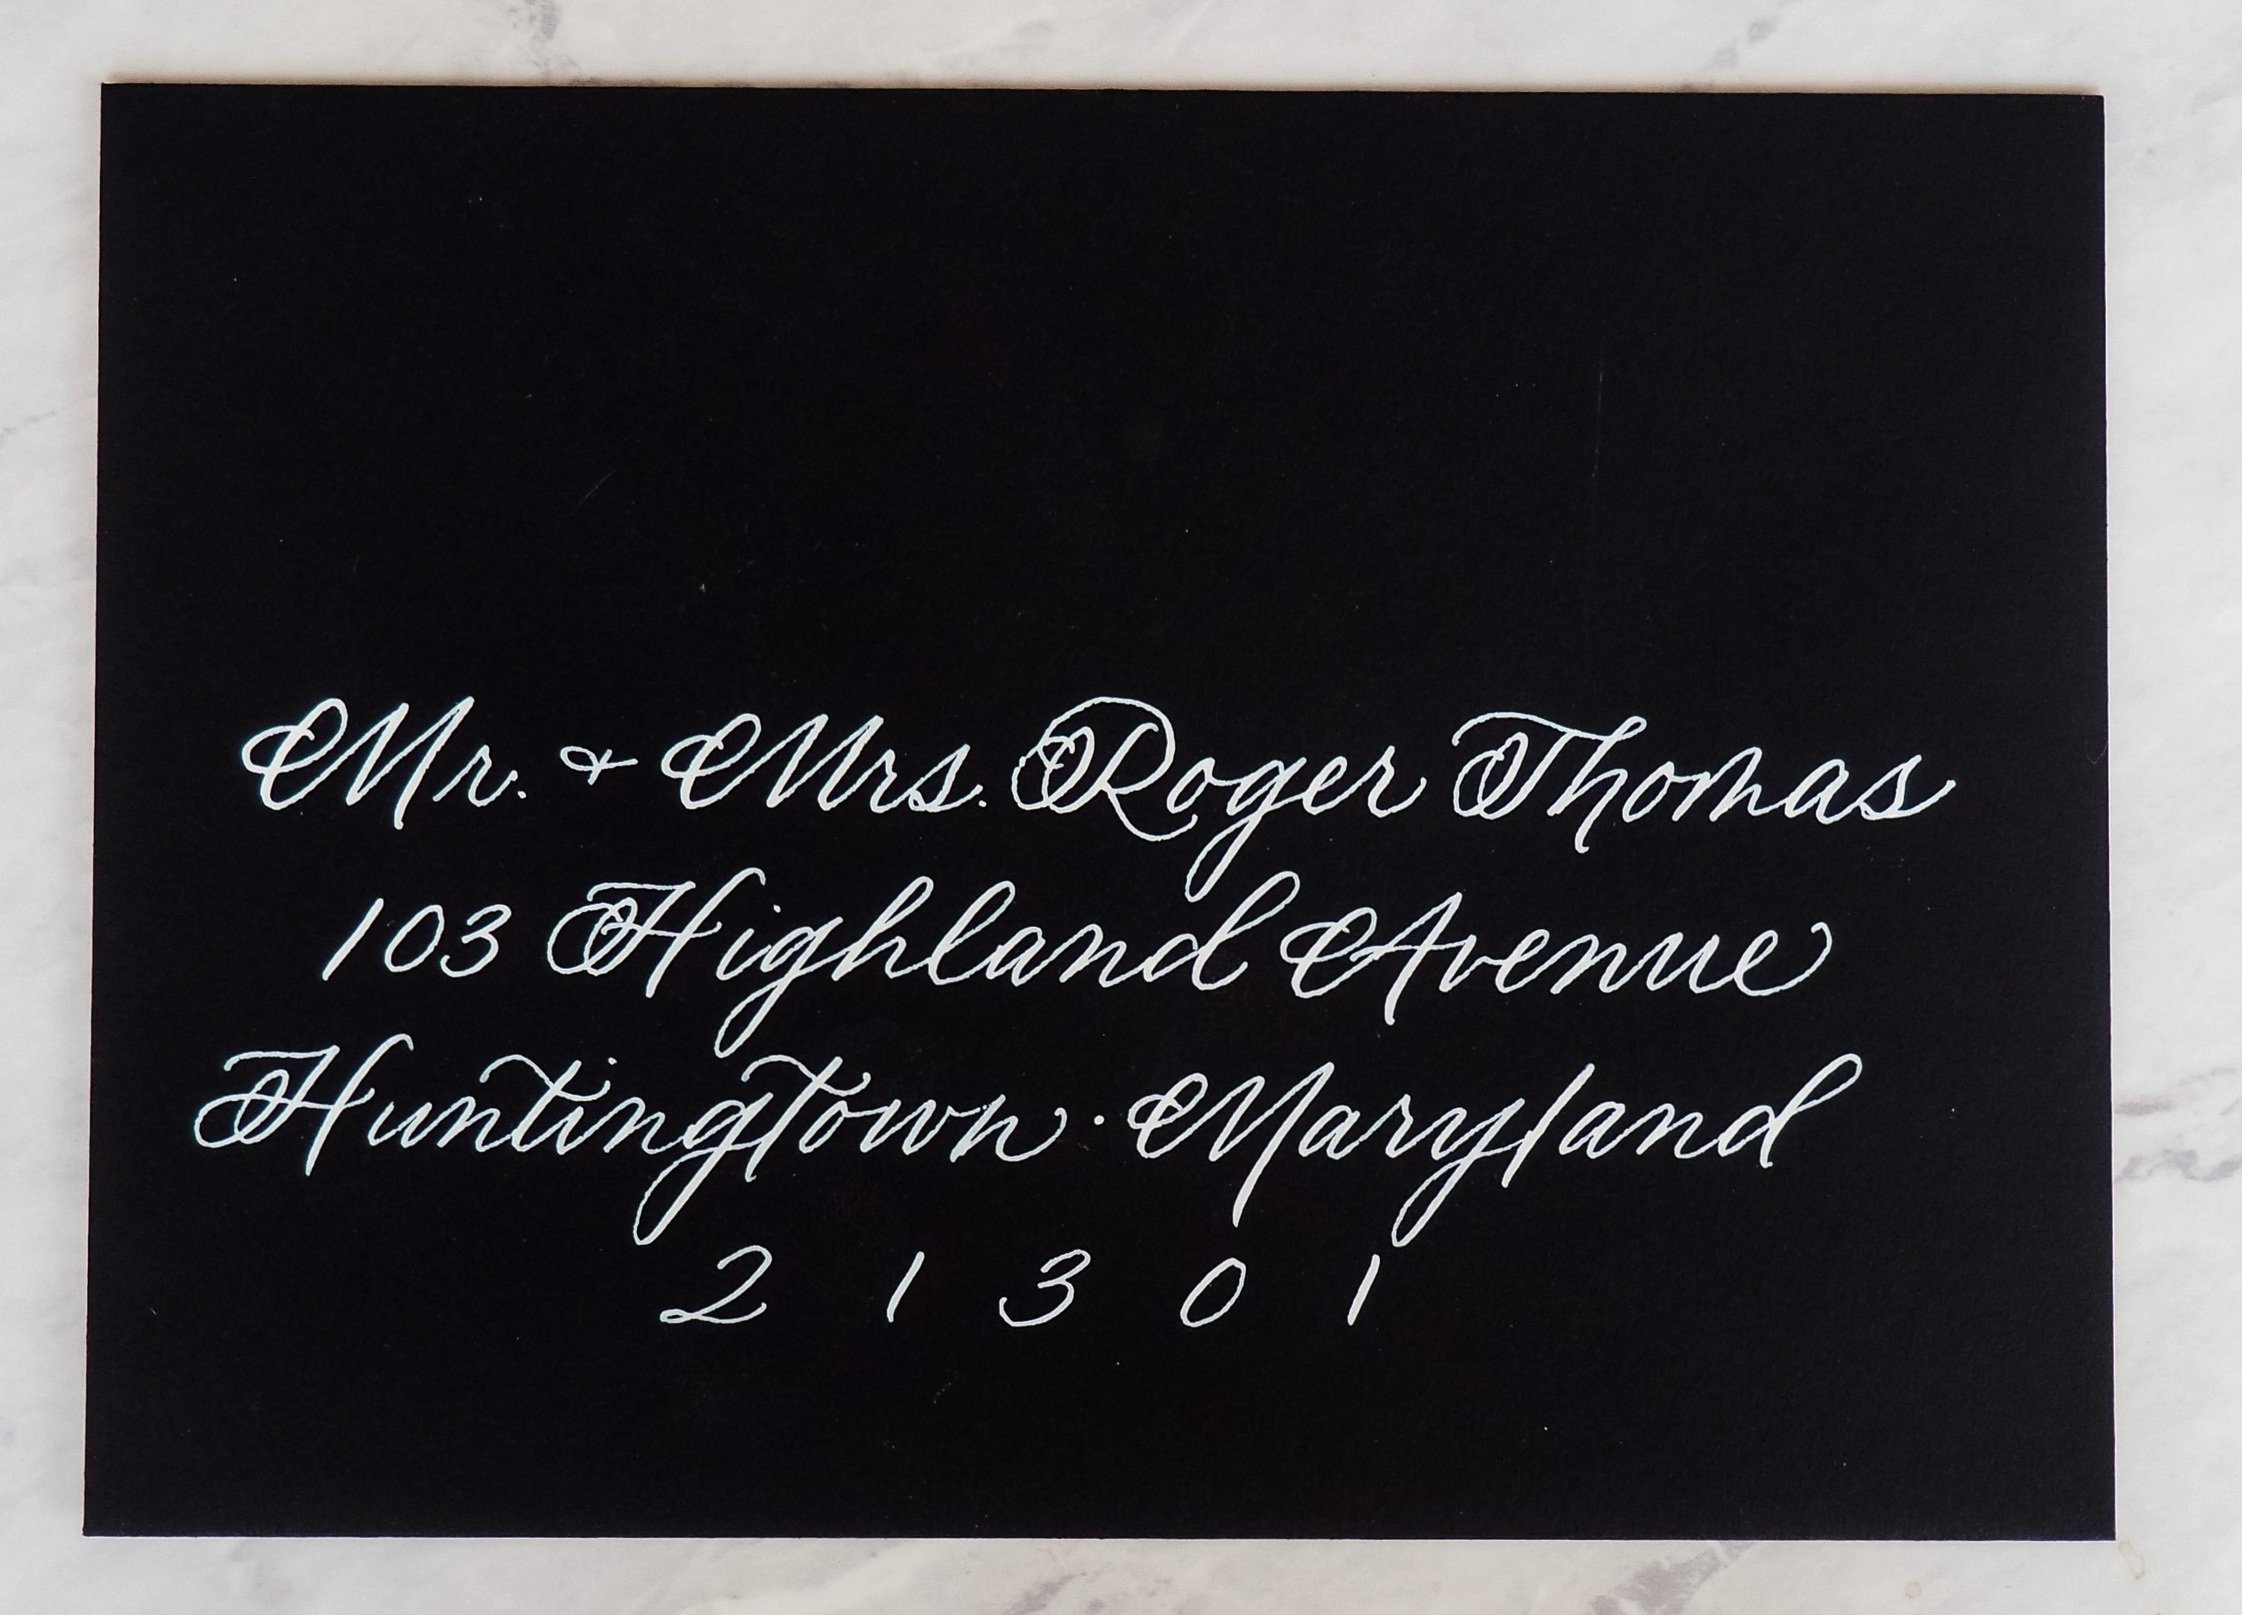 Mr. & Mrs. Roger Thomas
103 Highland Avenue
Huntingtown · Maryland
2 1 3 0 1